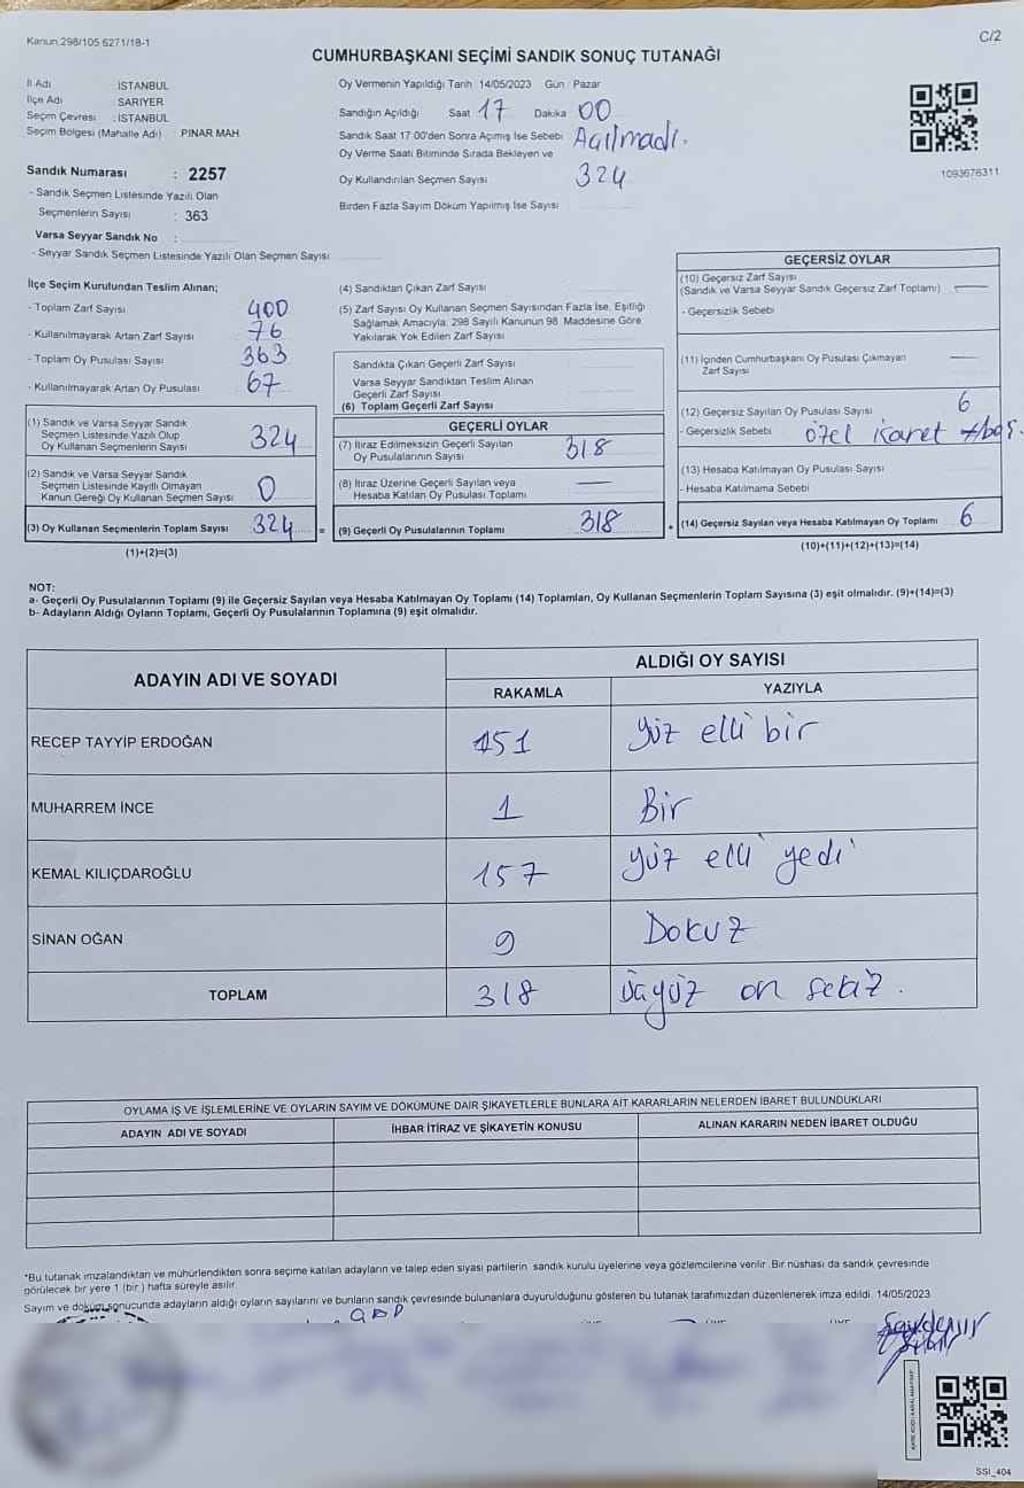 Kanun 298/105 6271/18-1
C/2
CUMHURBAŞKANI SEÇİMİ SANDIK SONUÇ TUTANAĞI
İl Adı : İSTANBUL
İlçe Adı : SARIYER
Seçim Çevresi : İSTANBUL
Seçim Bölgesi (Mahalle Adı) : PINAR MAH.
Sandık Numarası : 2257
- Sandık Seçmen Listesinde Yazılı Olan
Seçmenlerin Sayısı : 363
Varsa Seyyar Sandık No :
- Seyyar Sandık Seçmen Listesinde Yazılı Olan Seçmen Sayısı
Oy Vermenin Yapıldığı Tarih 14/05/2023 Gün : Pazar
Sandığın Açıldığı Saat 17 Dakika 00
Sandık Saat 17.00'den Sonra Açmış İse Sebebi Açılmadı.
Oy Verme Saati Bitiminde Sırada Bekleyen ve
Oy Kullandırılan Seçmen Sayısı 324
Birden Fazla Sayım Döküm Yapılmış İse Sayısı
1093676311
İlçe Seçim Kurulundan Teslim Alınan;
- Toplam Zarf Sayısı 400
- Kullanılmayarak Artan Zarf Sayısı 76
- Toplam Oy Pusulası Sayısı 363
- Kullanılmayarak Artan Oy Pusulası 67
(1) Sandık ve Varsa Seyyar Sandık
Seçmen Listesinde Yazılı Olup
Oy Kullanan Seçmenlerin Sayısı 324
(2) Sandık ve Varsa Seyyar Sandık
Seçmen Listesinde Kayıtlı Olmayan
Kanun Gereği Oy Kullanan Seçmen Sayısı 0
(3) Oy Kullanan Seçmenlerin Toplam Sayısı 324 =
(1)+(2)=(3)
(4) Sandıktan Çıkan Zarf Sayısı
(5) Zarf Sayısı Oy Kullanan Seçmen Sayısından Fazla İse, Eşitliği
Sağlamak Amacıyla, 298 Sayılı Kanunun 98. Maddesine Göre
Yakılarak Yok Edilen Zarf Sayısı
Sandıkta Çıkan Geçerli Zarf Sayısı
Varsa Seyyar Sandıktan Teslim Alınan
Geçerli Zarf Sayısı
(6) Toplam Geçerli Zarf Sayısı
GEÇERLİ OYLAR
(7) İtiraz Edilmeksizin Geçerli Sayılan
Oy Pusulalarının Sayısı 318
(8) İtiraz Üzerine Geçerli Sayılan veya
Hesaba Katılan Oy Pusulası Toplamı —
(9) Geçerli Oy Pusulalarının Toplamı 318 +
GEÇERSİZ OYLAR
(10) Geçersiz Zarf Sayısı
(Sandık ve Varsa Seyyar Sandık Geçersiz Zarf Toplamı) —
- Geçersizlik Sebebi
(11) İçinden Cumhurbaşkanı Oy Pusulası Çıkmayan —
Zarf Sayısı
(12) Geçersiz Sayılan Oy Pusulası Sayısı 6
- Geçersizlik Sebebi özel işaret +boş.
(13) Hesaba Katılmayan Oy Pusulası Sayısı
- Hesaba Katılmama Sebebi
(14) Geçersiz Sayılan veya Hesaba Katılmayan Oy Toplamı 6
(10)+(11)+(12)+(13)=(14)
NOT:
a- Geçerli Oy Pusulalarının Toplamı (9) ile Geçersiz Sayılan veya Hesaba Katılmayan Oy Toplamı (14) Toplamları, Oy Kullanan Seçmenlerin Toplam Sayısına (3) eşit olmalıdır. (9)+(14)=(3)
b- Adayların Aldığı Oyların Toplamı, Geçerli Oy Pusulalarının Toplamına (9) eşit olmalıdır.
ADAYIN ADI VE SOYADI ALDIĞI OY SAYISI
RAKAMLA YAZIYLA
RECEP TAYYİP ERDOĞAN 151 yüz elli bir
MUHARREM İNCE 1 Bir
KEMAL KILIÇDAROĞLU 157 yüz elli yedi
SİNAN OĞAN 9 Dokuz
TOPLAM 318 üçyüz on sekiz.
OYLAMA İŞ VE İŞLEMLERİNE VE OYLARIN SAYIM VE DÖKÜMÜNE DAİR ŞİKAYETLERLE BUNLARA AİT KARARLARIN NELERDEN İBARET BULUNDUKLARI
ADAYIN ADI VE SOYADI İHBAR İTİRAZ VE ŞİKAYETİN KONUSU ALINAN KARARIN NEDEN İBARET OLDUĞU
*Bu tutanak imzalandıktan ve mühürlendikten sonra seçime katılan adayların ve talep eden siyasi partilerin sandık kurulu üyelerine veya gözlemcilerine verilir. Bir nüshası da sandık çevresinde
görülecek bir yere 1 (bir) hafta süreyle asılır.
Sayım ve döküm sonucunda adayların aldığı oyların sayılarını ve bunların sandık çevresinde bulunanlara duyurulduğunu gösteren bu tutanak tarafımızdan düzenlenerek imza edildi. 14/05/2023
SSI_404